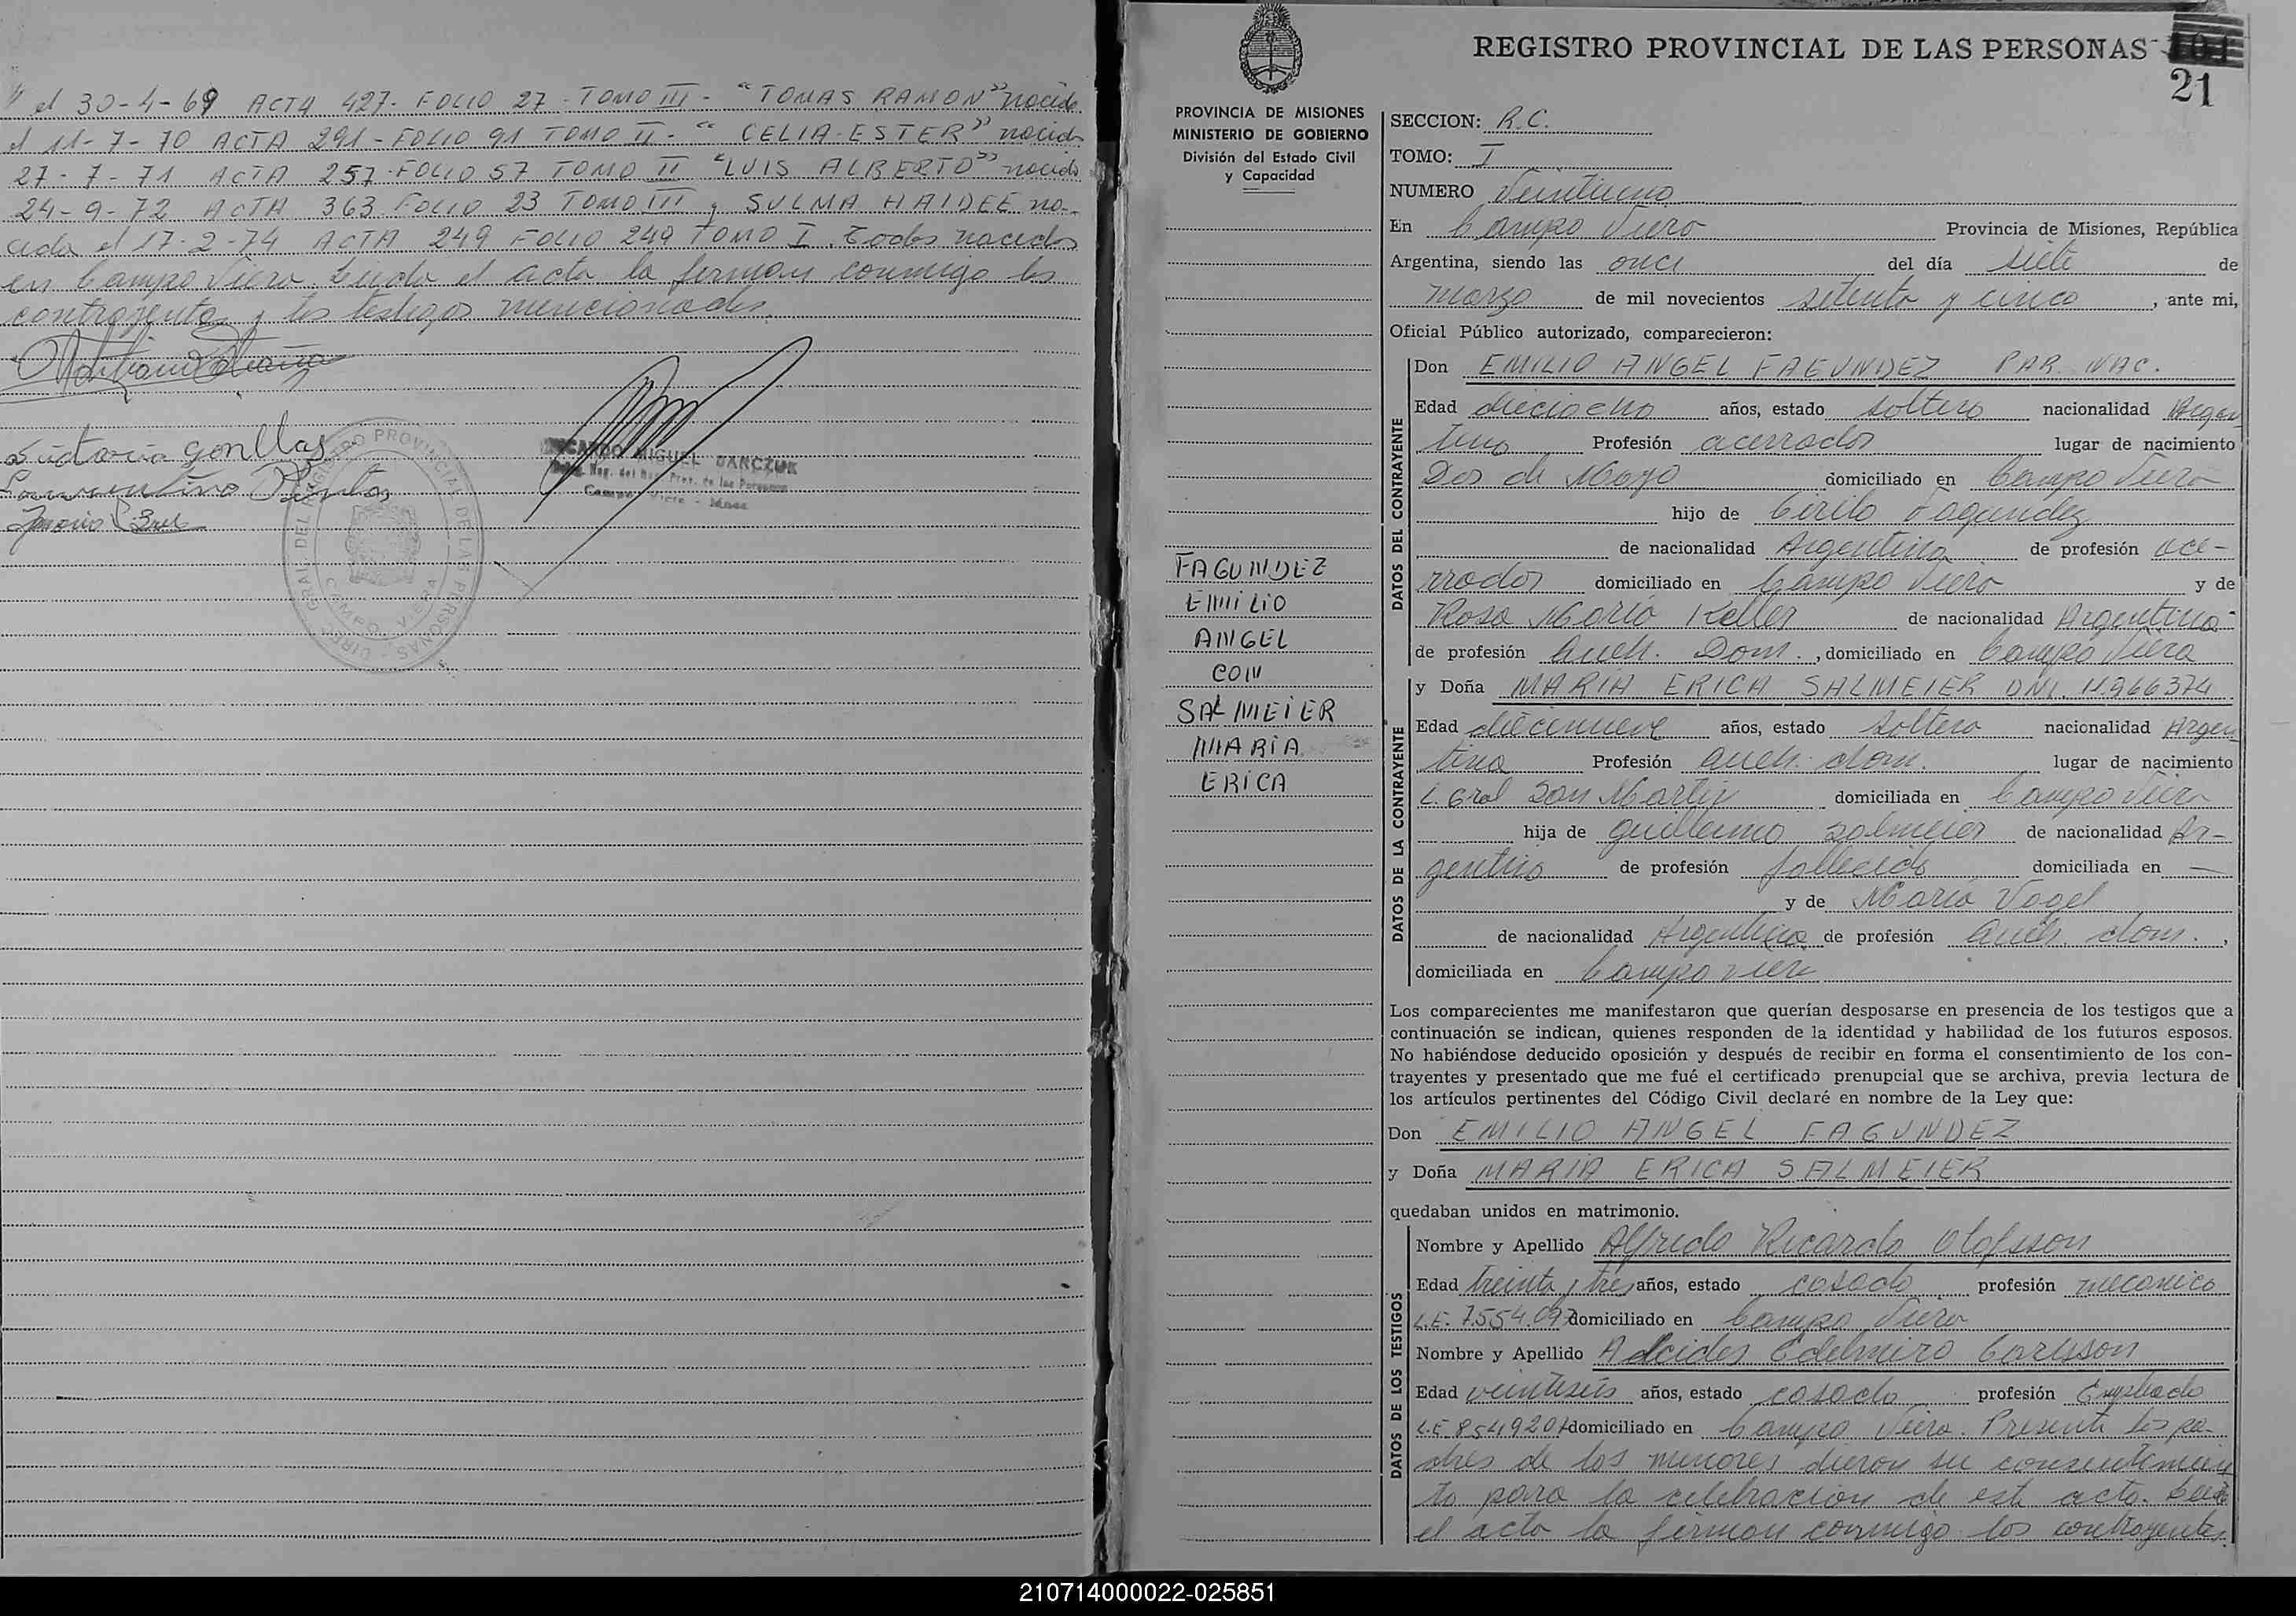 " el 30-4-69 ACTA 427- FOLIO 27 - TOMO III - "TOMAS RAMON" nacido
el 11-7-70 ACTA 291 - FOLIO 91 TOMO II - " CELIA ESTER" nacida
27-7-71 ACTA 257 FOLIO 57 TOMO II "LUIS ALBERTO" nacido
24-9-72 ACTA 363 FOLIO 23 TOMO III y SULMA HAIDEE na-
cida el 17-2-74 ACTA 249 FOLIO 249 TOMO I. Todos nacidos
en Campo Viera. Leida el acta la firman conmigo los
contrayentes y los testigos mencionados.
DIREC. GRAL. DEL REGISTRO PROVINCIAL DE LAS PERSONAS
CAMPO VIERA
RICARDO MIGUEL DANCZUK
Campo Viera - Mnes
REGISTRO PROVINCIAL DE LAS PERSONAS
21
PROVINCIA DE MISIONES
MINISTERIO DE GOBIERNO
División del Estado Civil
y Capacidad
FAGUNDEZ
EMILIO
ANGEL
CON
SALMEIER
MARIA
ERICA
SECCION: R.C.
TOMO: I
NUMERO Veintiuno
En Campo Viera Provincia de Misiones, República
Argentina, siendo las once del día siete de
marzo de mil novecientos setenta y cinco, ante mi,
Oficial Público autorizado, comparecieron:
DATOS DEL CONTRAYENTE
Don EMILIO ANGEL FAEUNDEZ PAR. NAC.
Edad dieciocho años, estado soltero nacionalidad Argen
tino Profesión acerrador lugar de nacimiento
Dos de Mayo domiciliado en Campo Viera
hijo de Cirilo Fagundez
de nacionalidad Argentina de profesión ace-
rrador domiciliado en Campo Viera y de
Rosa Maria Keller de nacionalidad Argentina
de profesión Queh. Dom., domiciliado en Campo Viera
DATOS DE LA CONTRAYENTE
y Doña MARIA ERICA SALMEIER DNI. 11.966374
Edad diecinueve años, estado soltera nacionalidad Argen
tina Profesión queh. dom. lugar de nacimiento
L. Gral San Martin domiciliada en Campo Viera
hija de Guillermo Salmeier de nacionalidad Ar-
gentino de profesión fallecido domiciliada en —
y de Maria Vogel
de nacionalidad Argentina de profesión Queh. dom.,
domiciliada en Campo Viera
Los comparecientes me manifestaron que querían desposarse en presencia de los testigos que a
continuación se indican, quienes responden de la identidad y habilidad de los futuros esposos.
No habiéndose deducido oposición y después de recibir en forma el consentimiento de los con-
trayentes y presentado que me fué el certificado prenupcial que se archiva, previa lectura de
los artículos pertinentes del Código Civil declaré en nombre de la Ley que:
Don EMILIO ANGEL FAGUNDEZ
y Doña MARIA ERICA SALMEIER
quedaban unidos en matrimonio.
DATOS DE LOS TESTIGOS
Nombre y Apellido Alfredo Ricardo Olofsson
Edad treinta y tres años, estado casado profesión mecanico
L.E. 7.554.097 domiciliado en Campo Viera
Nombre y Apellido Alcides Edelmiro Carlsson
Edad veintiseis años, estado casado profesión Empleado
L.E 8549201 domiciliado en Campo Viera. Presente los pa-
dres de los menores dieron su consentimien
to para la celebracion de este acto. Leida
el acta la firman conmigo los contrayentes
210714000022-025851